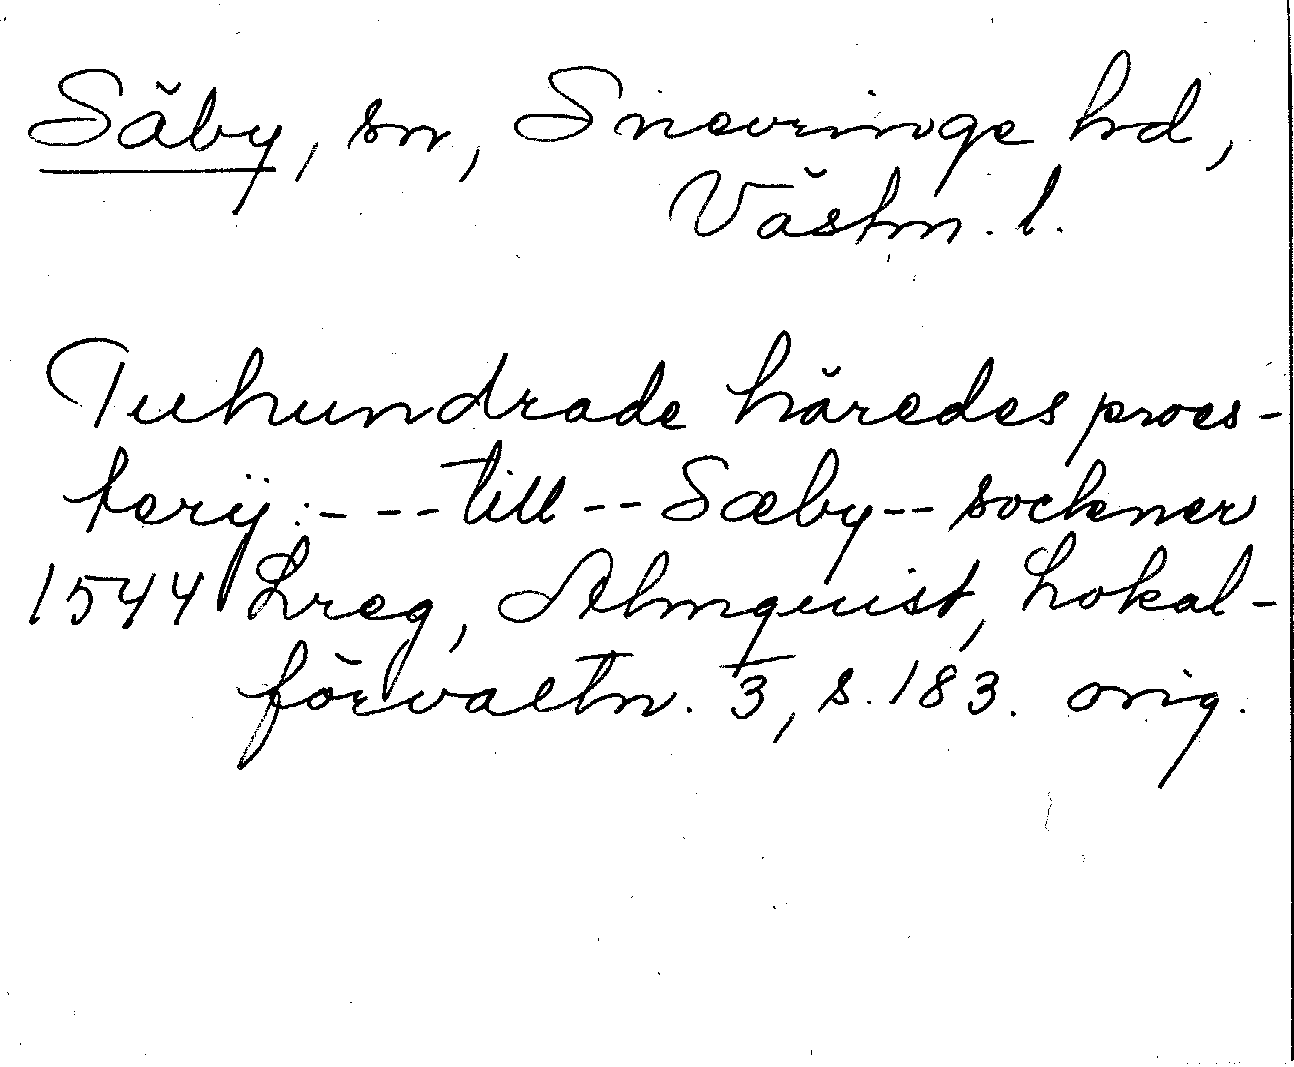 Säby, sn, Snevringe hd,
Västm. l.
Tuhundrade häredes proes-
terij: - - - till - - Sæby - - sockner
1544 Lreg, Almquist, Lokal-
förvaltn. 3, s. 183. orig.